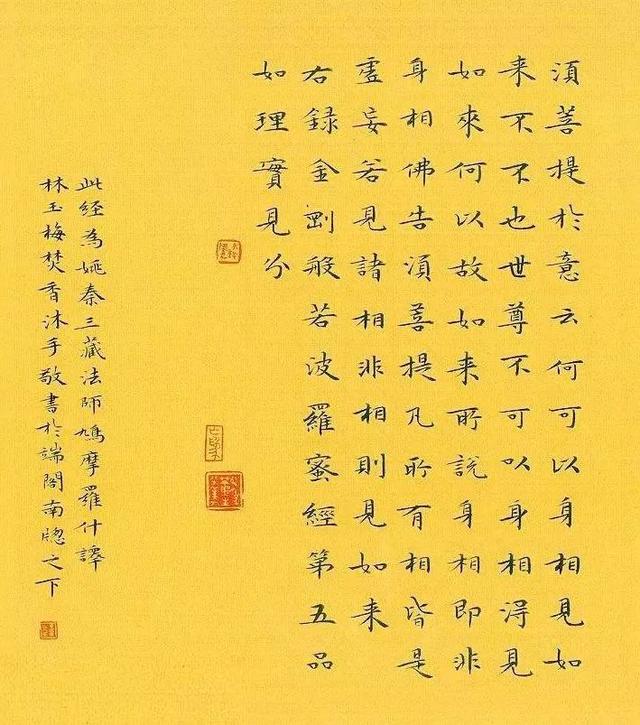 須菩提於意云何可以身相見如
来不不也世尊不可以身相得見
如來何以故如来所說身相即非
身相佛告須菩提凡所有相皆是
虛妄若見諸相非相則見如来
右録金剛般若波羅蜜經第五品
如理實見分
此経為姚秦三藏法師鳩摩羅什譯
林玉梅焚香沐手敬書於端閣南窓之下